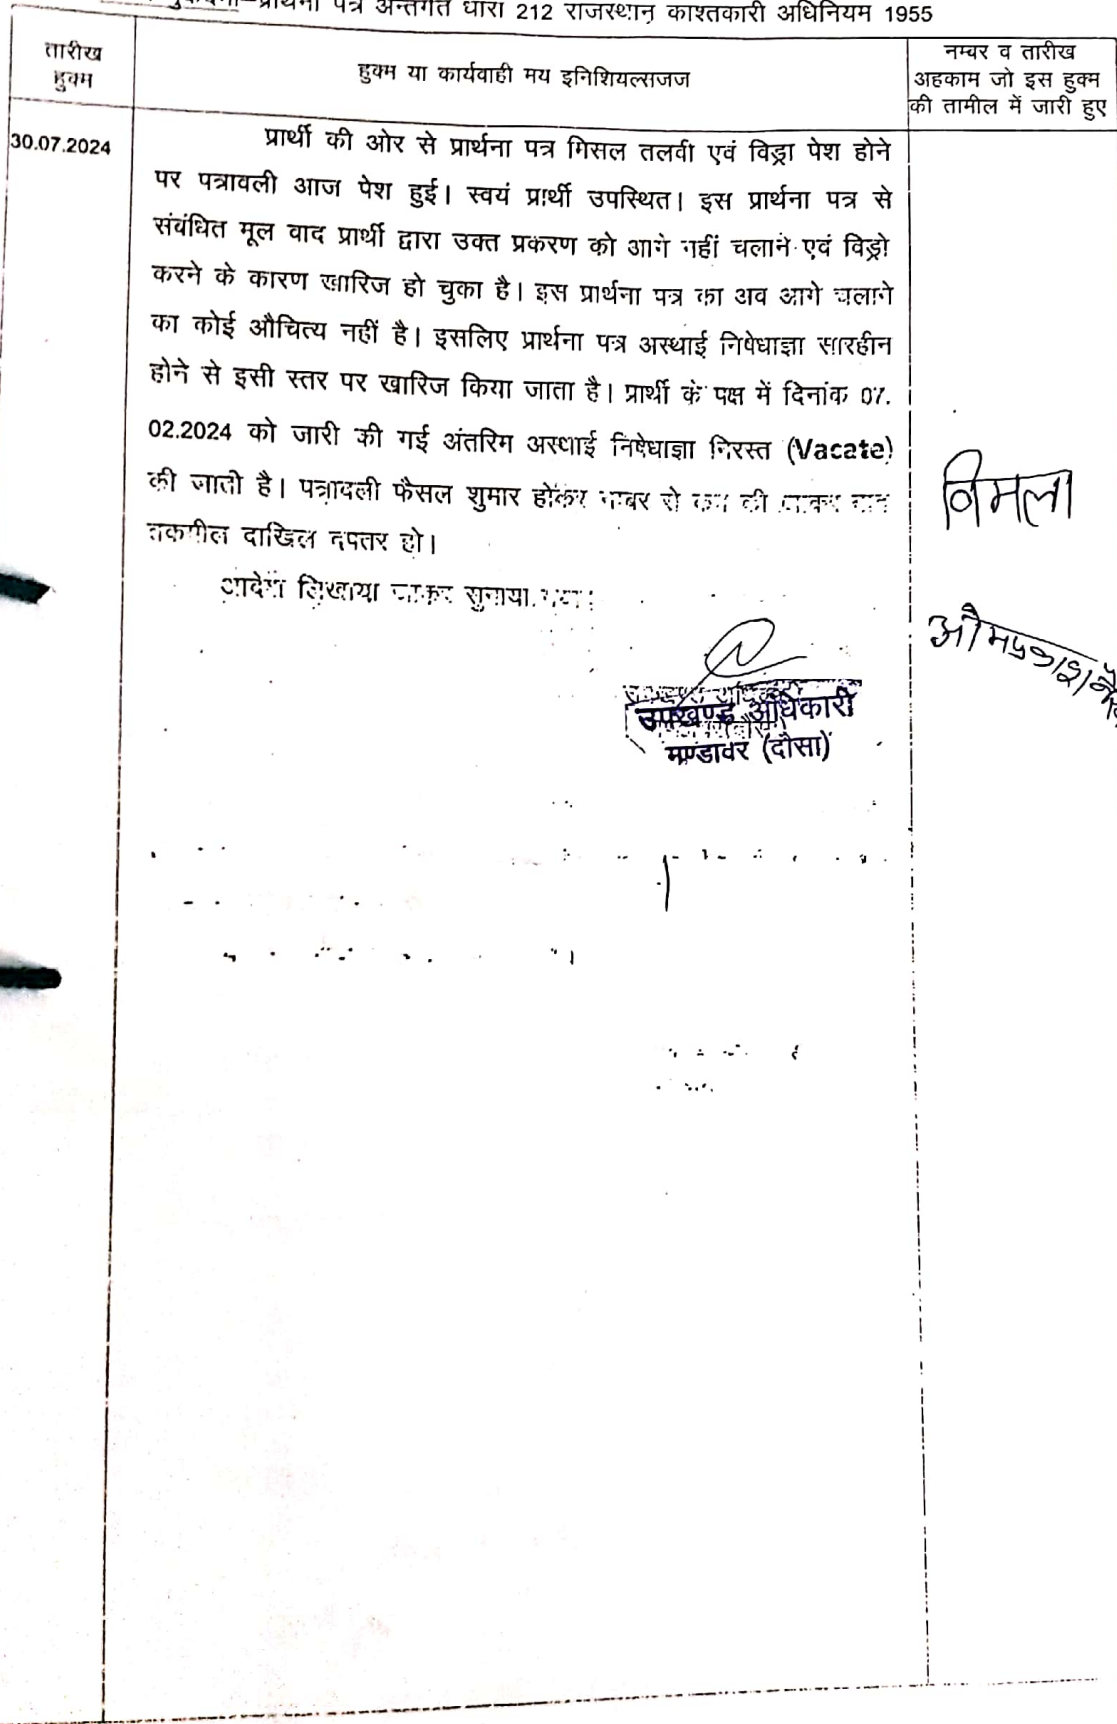 प्रार्थना पत्र अन्तर्गत धारा 212 राजस्थान काश्तकारी अधिनियम 1955
तारीख
हुक्म
हुक्म या कार्यवाही मय इनिशियल्सजज
नम्बर व तारीख
अहकाम जो इस हुक्म
की तामील में जारी हुए
30.07.2024
प्रार्थी की ओर से प्रार्थना पत्र मिसल तलवी एवं विड्रा पेश होने
पर पत्रावली आज पेश हुई। स्वयं प्रार्थी उपस्थित। इस प्रार्थना पत्र से
संबंधित मूल वाद प्रार्थी द्वारा उक्त प्रकरण को आगे नहीं चलाने एवं विड्रो
करने के कारण खारिज हो चुका है। इस प्रार्थना पत्र का अव आगे चलाने
का कोई औचित्य नहीं है। इसलिए प्रार्थना पत्र अस्थाई निषेधाज्ञा सारहीन
होने से इसी स्तर पर खारिज किया जाता है। प्रार्थी के पक्ष में दिनांक 07.
02.2024 को जारी की गई अंतरिम अस्थाई निषेधाज्ञा निरस्त (Vacate)
की जाती है। पत्रावली फैसल शुमार होकर नम्बर से कम की जाकर बाद
तकमील दाखिल दफ्तर हो।
आदेश लिखाया जाकर सुनाया गया।
विमला
औमप्रकाश
उपखण्ड अधिकारी
मण्डावर (दौसा)